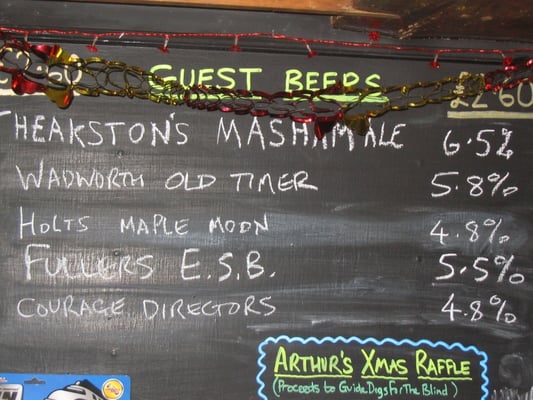 GUEST BEERS £2·60
THEAKSTON'S MASHAM ALE 6·5%
WADWORTH OLD TIMER 5·8%
HOLTS MAPLE MOON 4.8%
FULLERS E.S.B. 5.5%
COURAGE DIRECTORS 4.8%
ARTHUR'S XMAS RAFFLE
(Proceeds to Guide Dogs For The Blind)